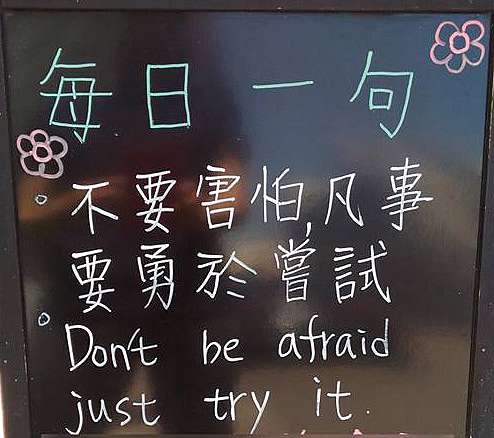 每日一句
不要害怕,凡事
要勇於嘗試
Don't be afraid
just try it.